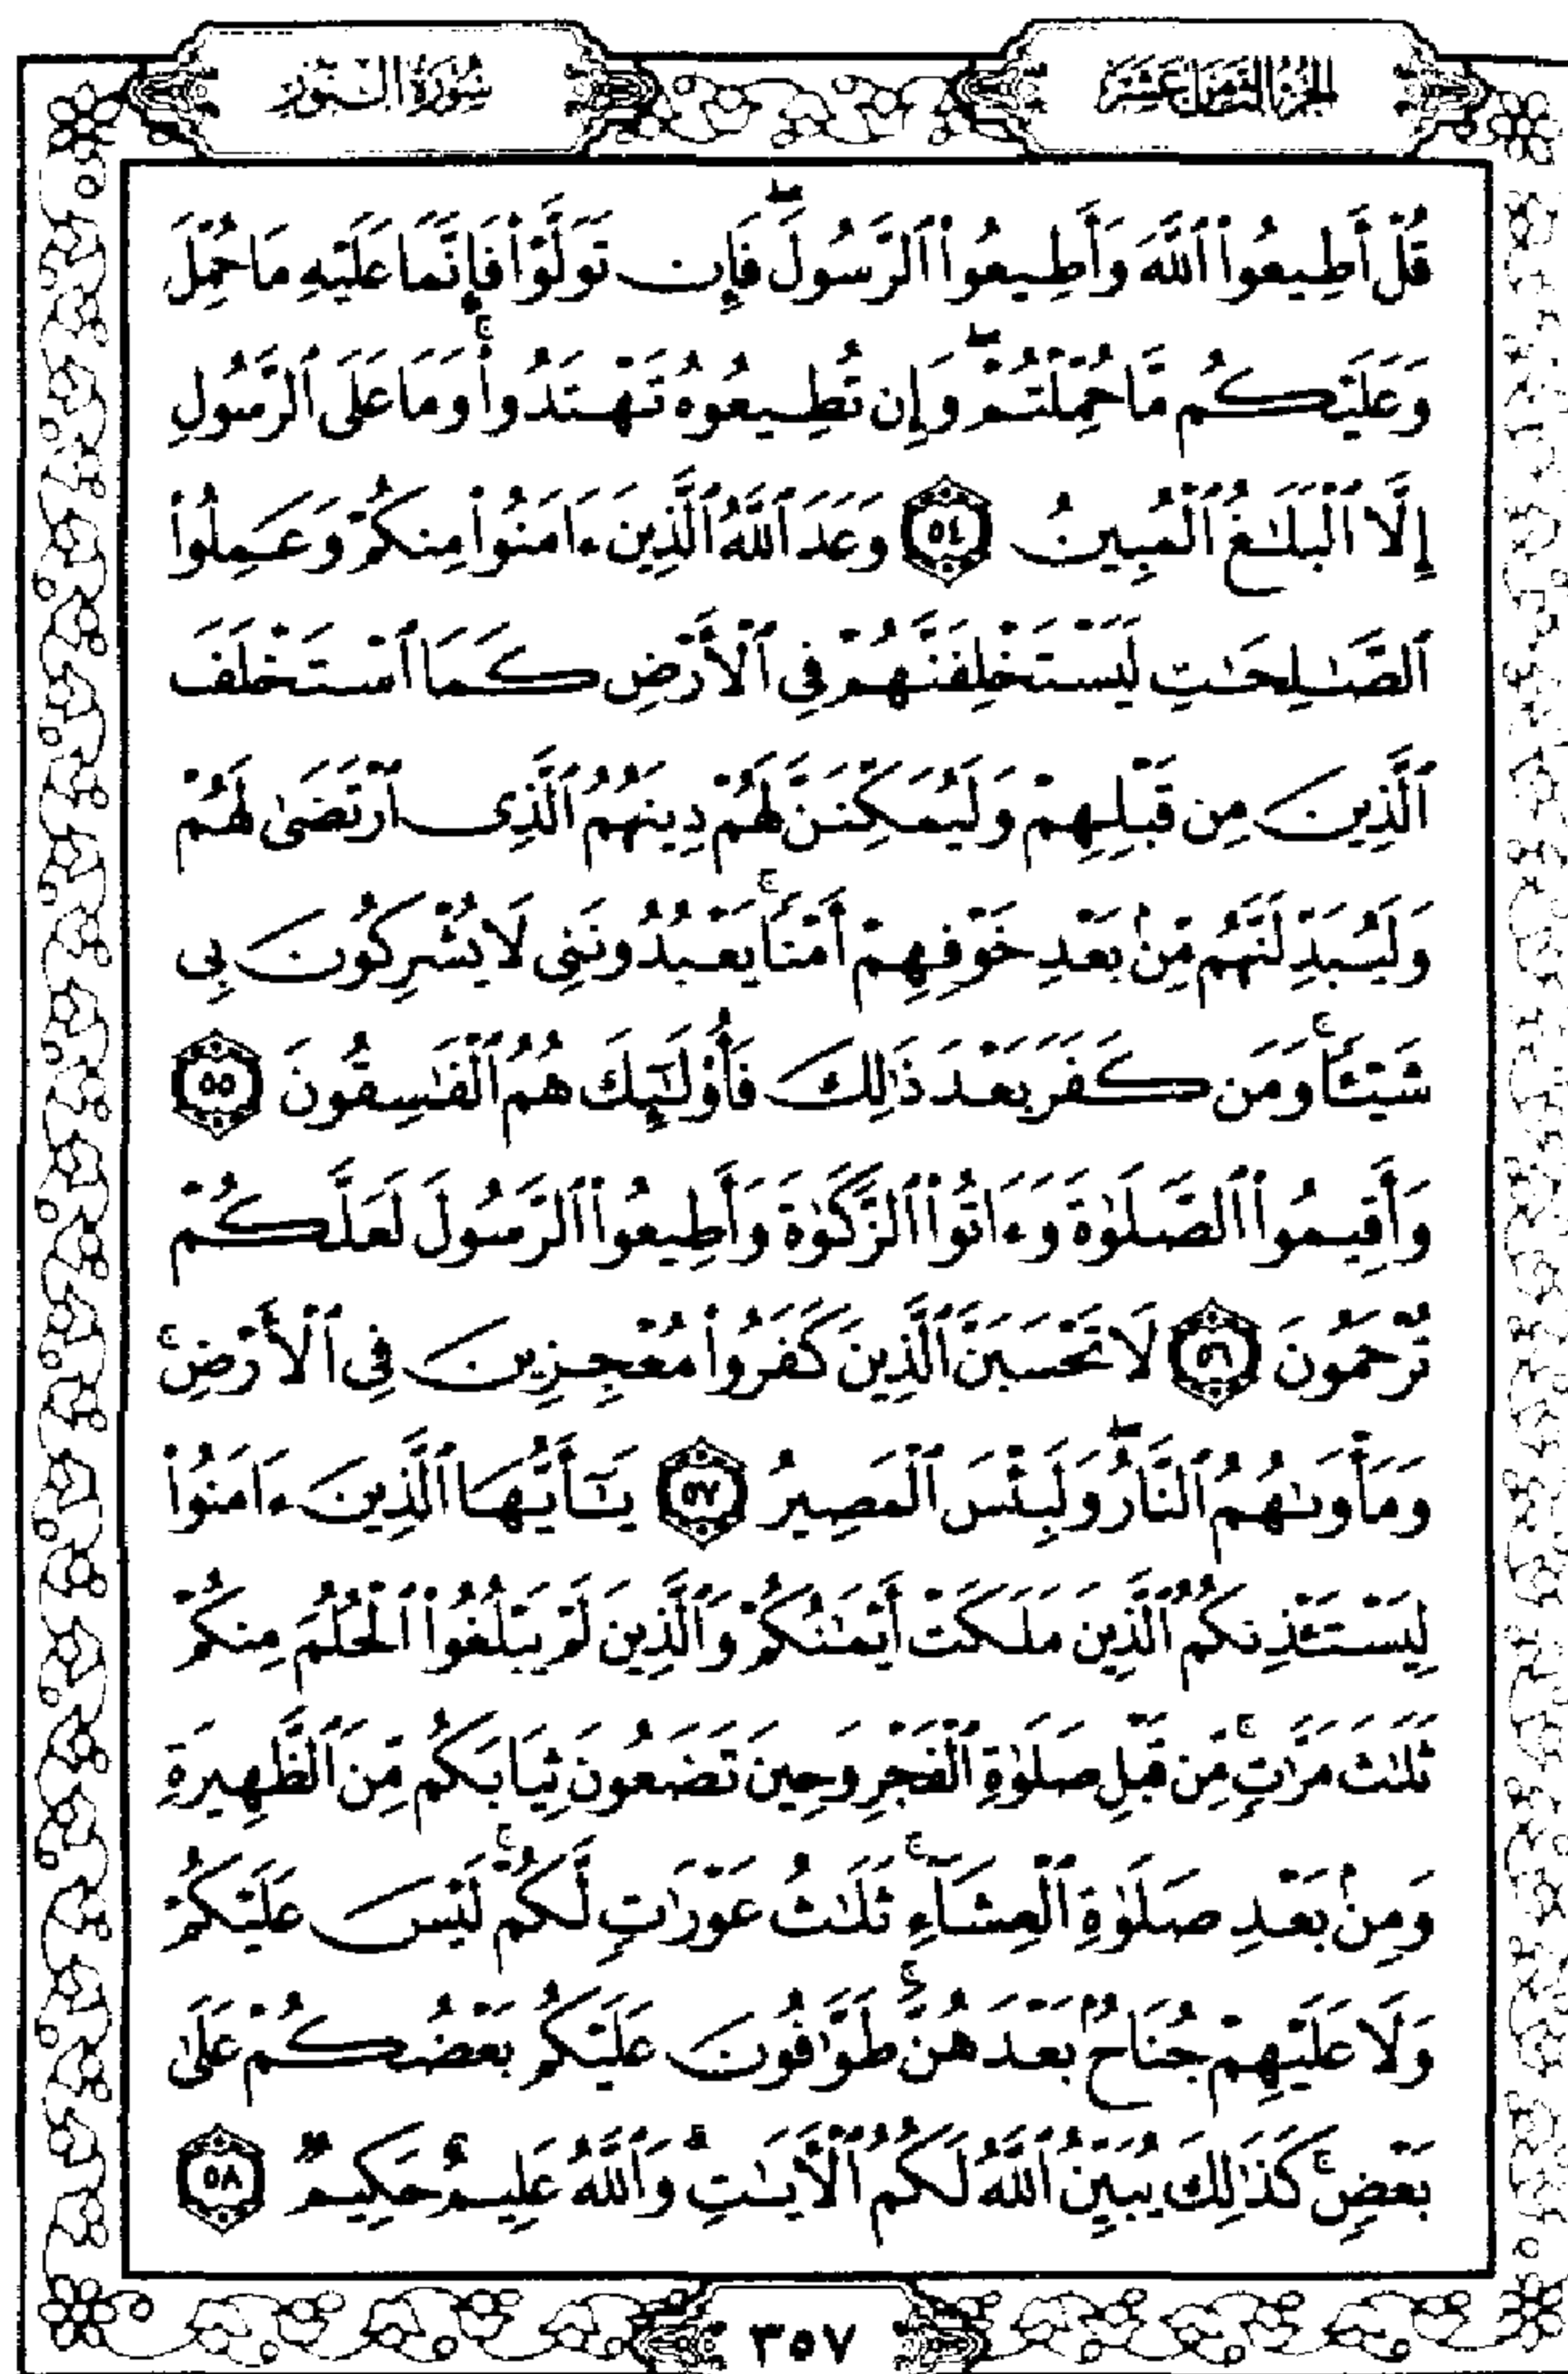 الجزء الثامن عشر
سورة النور
قُلْ أَطِيعُوا۟ ٱللَّهَ وَأَطِيعُوا۟ ٱلرَّسُولَۖ فَإِن تَوَلَّوْا۟ فَإِنَّمَا عَلَيْهِ مَا حُمِّلَ
وَعَلَيْكُم مَّا حُمِّلْتُمْۖ وَإِن تُطِيعُوهُ تَهْتَدُوا۟ۚ وَمَا عَلَى ٱلرَّسُولِ
إِلَّا ٱلْبَلَٰغُ ٱلْمُبِينُ ٥٤ وَعَدَ ٱللَّهُ ٱلَّذِينَ ءَامَنُوا۟ مِنكُمْ وَعَمِلُوا۟
ٱلصَّٰلِحَٰتِ لَيَسْتَخْلِفَنَّهُمْ فِى ٱلْأَرْضِ كَمَا ٱسْتَخْلَفَ
ٱلَّذِينَ مِن قَبْلِهِمْ وَلَيُمَكِّنَنَّ لَهُمْ دِينَهُمُ ٱلَّذِى ٱرْتَضَىٰ لَهُمْ
وَلَيُبَدِّلَنَّهُم مِّنۢ بَعْدِ خَوْفِهِمْ أَمْنًاۚ يَعْبُدُونَنِى لَا يُشْرِكُونَ بِى
شَيْـًٔاۚ وَمَن كَفَرَ بَعْدَ ذَٰلِكَ فَأُو۟لَٰٓئِكَ هُمُ ٱلْفَٰسِقُونَ ٥٥
وَأَقِيمُوا۟ ٱلصَّلَوٰةَ وَءَاتُوا۟ ٱلزَّكَوٰةَ وَأَطِيعُوا۟ ٱلرَّسُولَ لَعَلَّكُمْ
تُرْحَمُونَ ٥٦ لَا تَحْسَبَنَّ ٱلَّذِينَ كَفَرُوا۟ مُعْجِزِينَ فِى ٱلْأَرْضِۚ
وَمَأْوَىٰهُمُ ٱلنَّارُۖ وَلَبِئْسَ ٱلْمَصِيرُ ٥٧ يَٰٓأَيُّهَا ٱلَّذِينَ ءَامَنُوا۟
لِيَسْتَـْٔذِنكُمُ ٱلَّذِينَ مَلَكَتْ أَيْمَٰنُكُمْ وَٱلَّذِينَ لَمْ يَبْلُغُوا۟ ٱلْحُلُمَ مِنكُمْ
ثَلَٰثَ مَرَّٰتٍۚ مِّن قَبْلِ صَلَوٰةِ ٱلْفَجْرِ وَحِينَ تَضَعُونَ ثِيَابَكُم مِّنَ ٱلظَّهِيرَةِ
وَمِنۢ بَعْدِ صَلَوٰةِ ٱلْعِشَآءِۚ ثَلَٰثُ عَوْرَٰتٍ لَّكُمْۚ لَيْسَ عَلَيْكُمْ
وَلَا عَلَيْهِمْ جُنَاحٌۢ بَعْدَهُنَّۚ طَوَّٰفُونَ عَلَيْكُم بَعْضُكُمْ عَلَىٰ
بَعْضٍۚ كَذَٰلِكَ يُبَيِّنُ ٱللَّهُ لَكُمُ ٱلْأَيَٰتِۗ وَٱللَّهُ عَلِيمٌ حَكِيمٌ ٥٨
٣٥٧